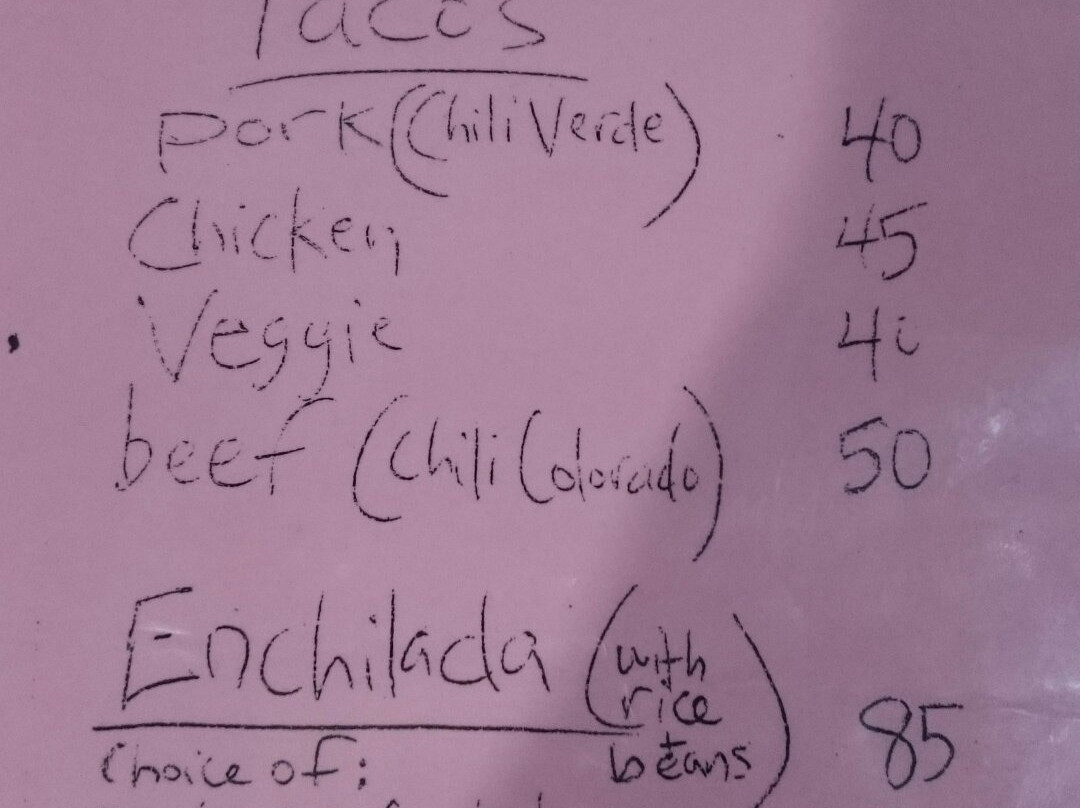 Tacos
pork (Chili Verde) 40
Chicken 45
Veggie 40
beef (Chili Colorado) 50
Enchilada (with rice + beans) 85
Choice of: